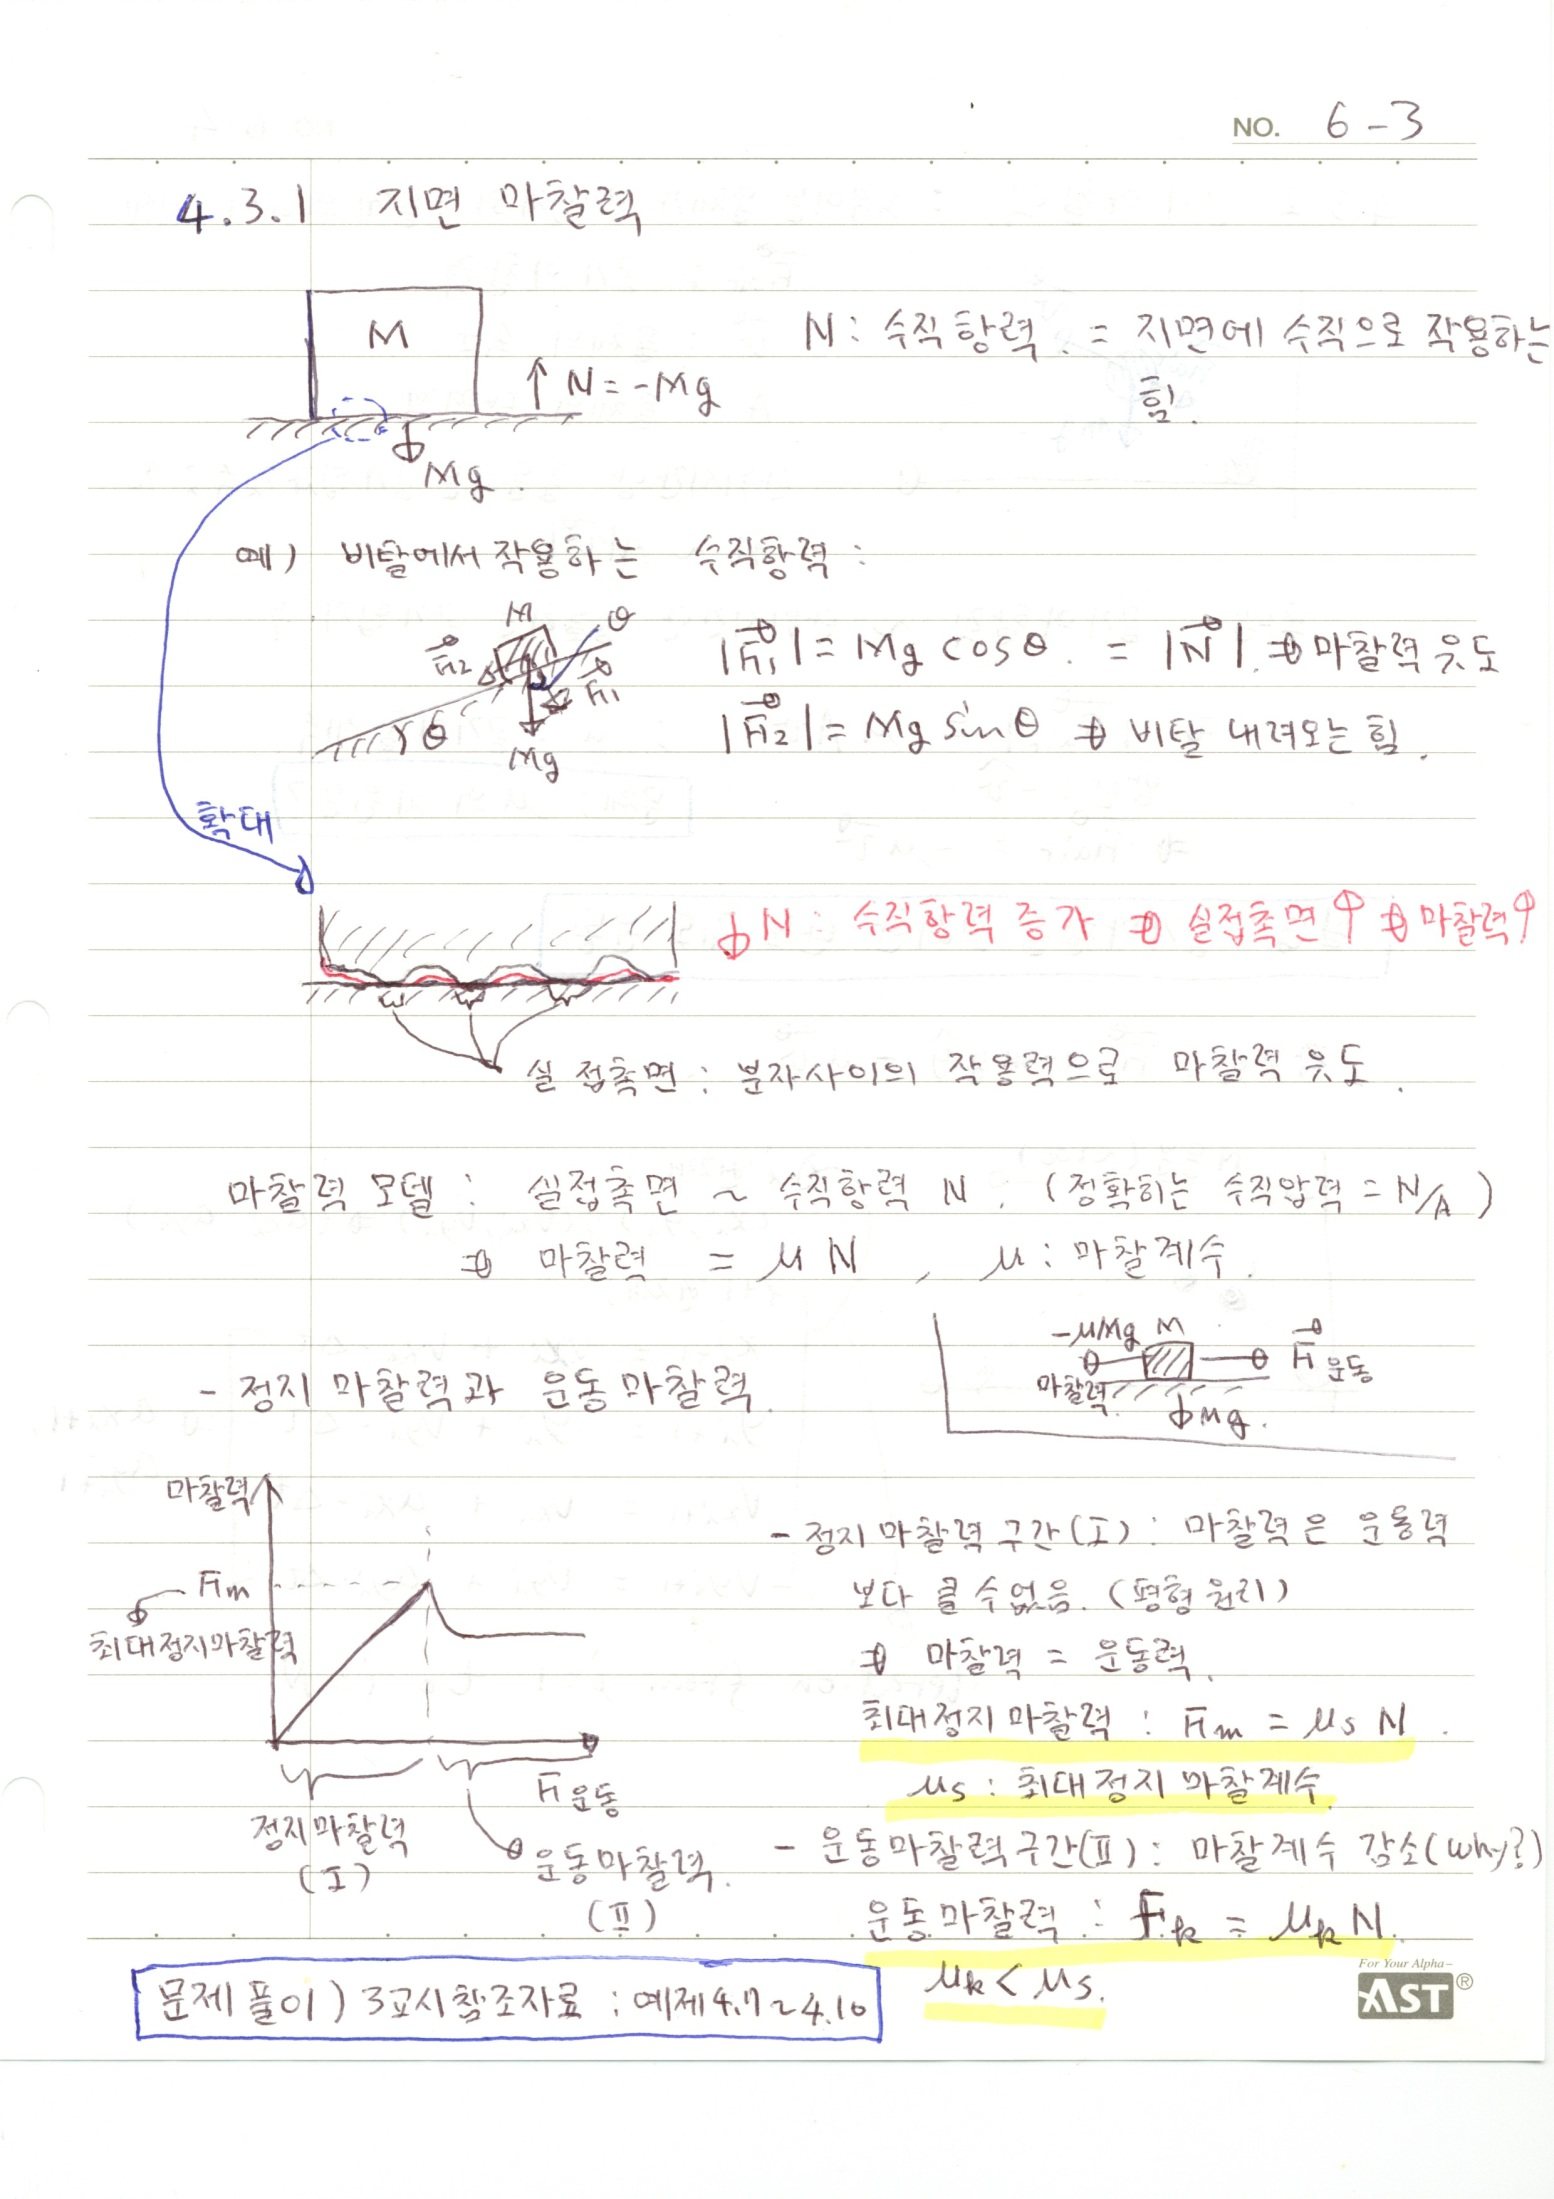 NO. 6-3
4.3.1 지면 마찰력
M
N = -Mg
Mg
N : 수직항력. = 지면에 수직으로 작용하는
힘.
예) 비탈에서 작용하는 수직항력 :
M
θ
F2
F1
θ
Mg
|F1| = Mg cosθ. = |N|. → 마찰력 유도
|F2| = Mg sinθ → 비탈 내려오는 힘.
확대
↓N : 수직항력 증가 → 실접촉면↑ → 마찰력↑
실 접촉면 : 분자사이의 작용력으로 마찰력 유도.
마찰력 모델 : 실접촉면 ~ 수직항력 N. (정확히는 수직압력 = N/A)
→ 마찰력 = μN , μ : 마찰계수.
- 정지 마찰력과 운동마찰력.
-μMg M F운동
마찰력
↓Mg.
마찰력
Fm
최대정지마찰력
F운동
정지마찰력
(I)
운동마찰력.
(II)
- 정지 마찰력 구간(I) : 마찰력은 운동력
보다 클 수 없음. (평형원리)
→ 마찰력 = 운동력.
최대정지 마찰력 : Fm = μs N.
μs : 최대정지 마찰계수.
- 운동마찰력구간(II) : 마찰계수 감소(why?)
운동마찰력 : Fk = μk N.
μk < μs.
문제풀이) 3교시참조자료 : 예제4.7~4.10
For Your Alpha-
AST®